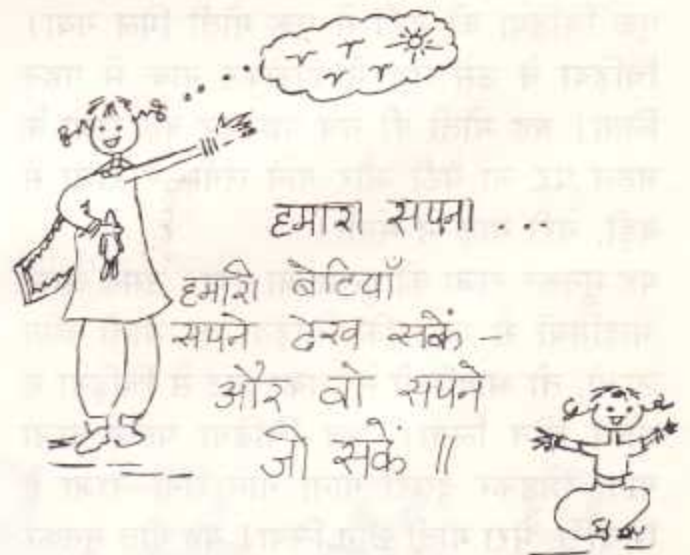 हमारा सपना ...
हमारी बेटियाँ
सपने देख सकें -
और वो सपने
जी सकें ॥